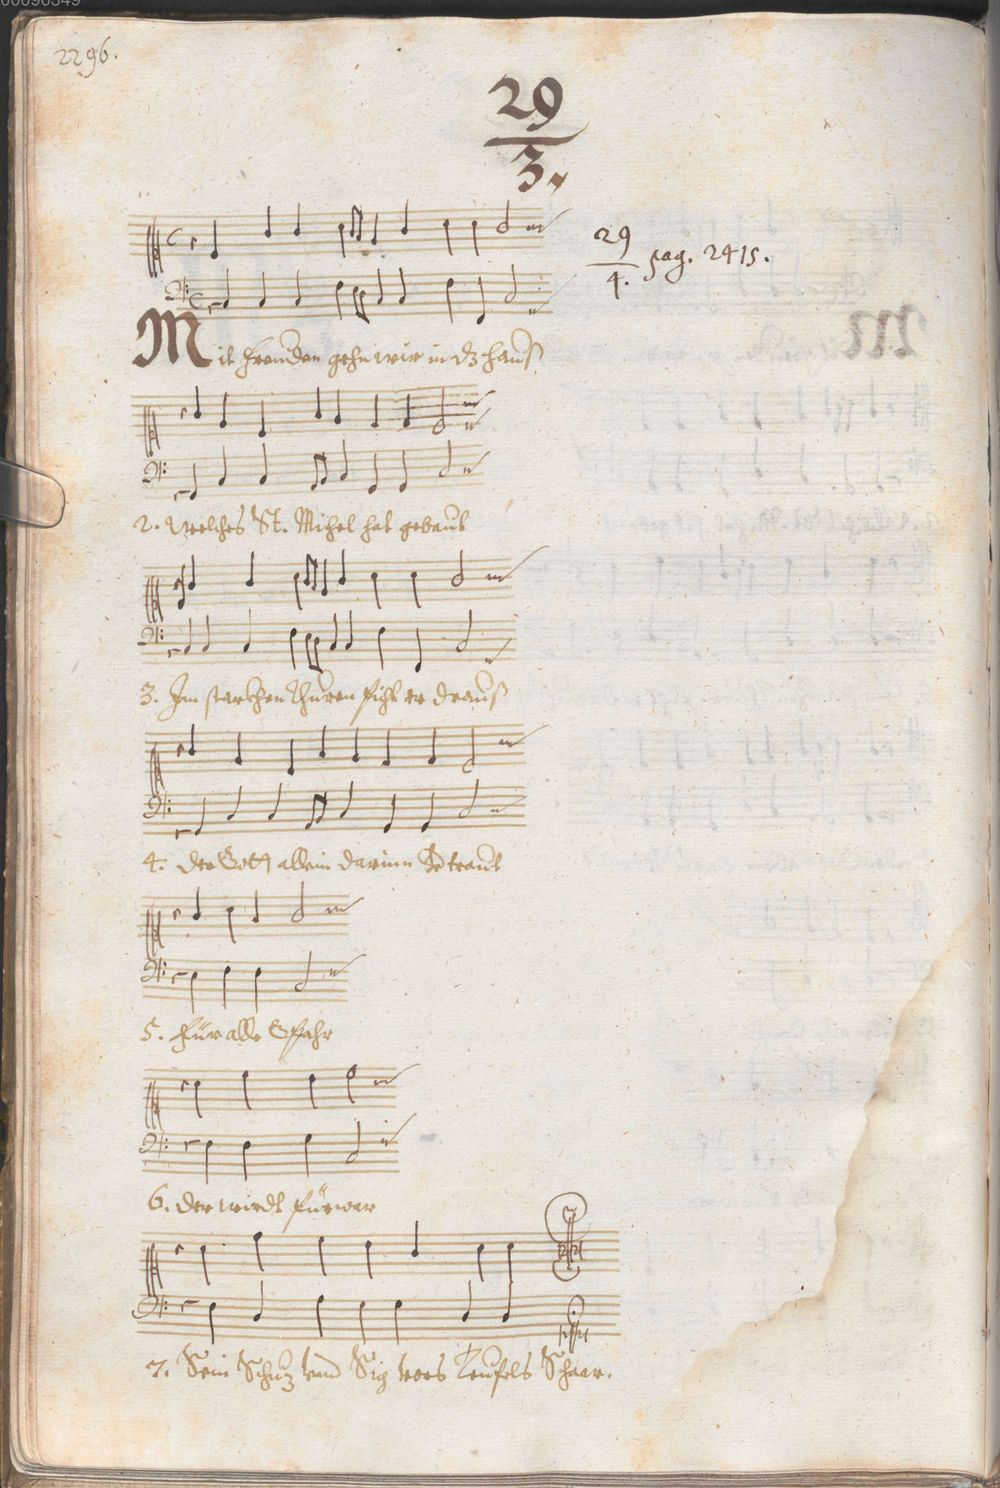 00096349
2296.
29
3.
29
4. pag. 2415.
Mit freuden gehn wir in dz hauß
2. Welches St. Michel hat gebaut
3. Im starckhen Thuren sicht er drauß
4. der Gott allein darinn Vertraut
5. Für alle Gfahr
6. der wirdt fürwar
7. Sein Schuz vnd Sig vors Teufels Schaar.